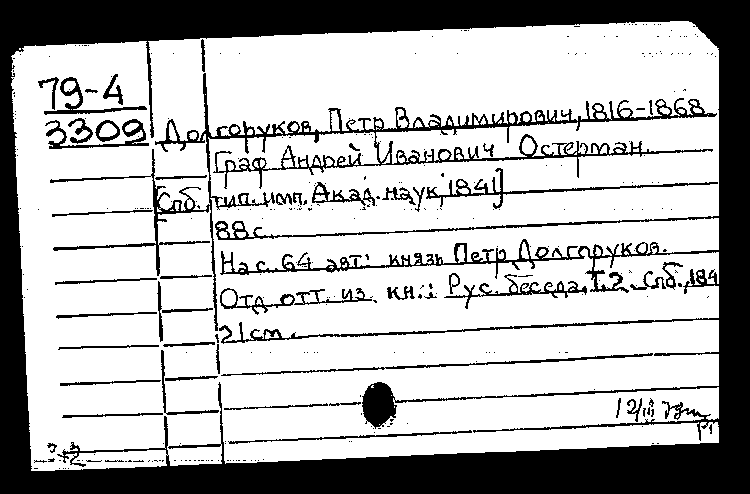 79-4
3309
Долгоруков, Петр Владимирович, 1816-1868
Граф Андрей Иванович Остерман.
[Спб., тип. имп. Акад. наук, 1841]
88 с.
На с. 64 авт: князь Петр Долгоруков.
Отд. отт. из кн.: Рус. беседа, Т.2. Спб., 184
21 см.
12/III